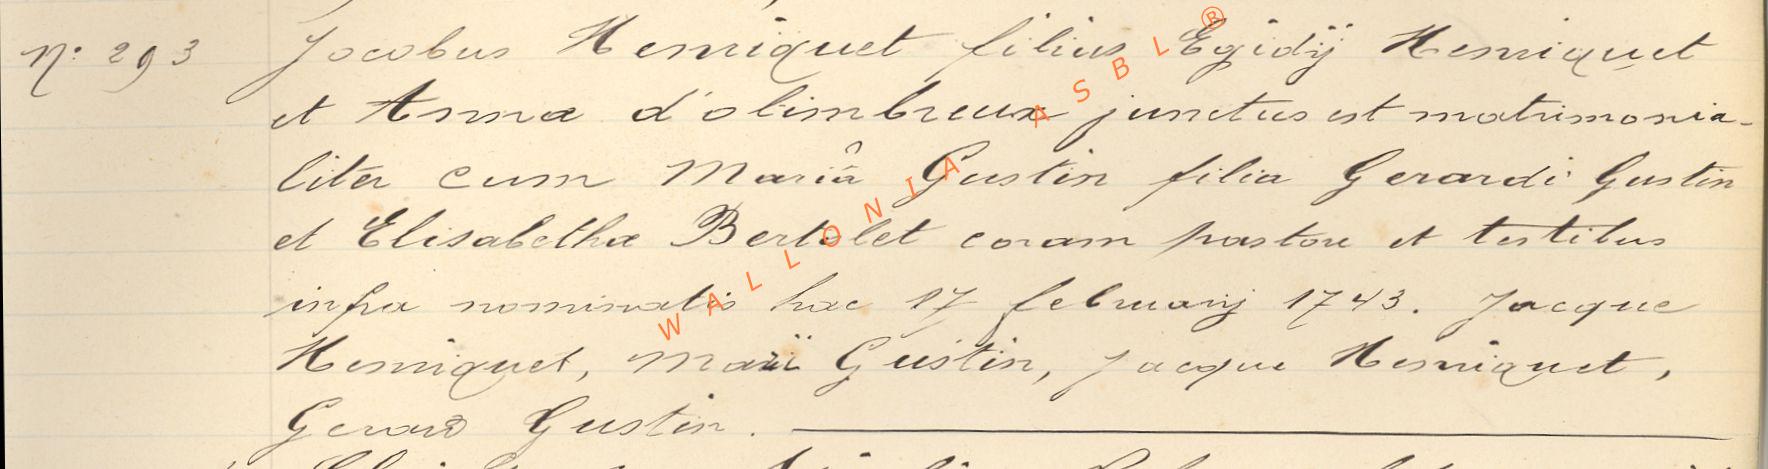 N: 293 Jacobus Henniquet filius Egidÿ Henniquet
et Anna d'olimbreux junctus est matrimonia-
liter cum Mariâ Gustin filia Gerardi Gustin
et Elisabetha Bertolet coram pastore et testibus
infra nominatis hac 17 februarij 1743. Jacque
Henniquet, Marii Gustin, Jacque Henniquet,
Gerard Gustin.
WALLONIA ASBL ®